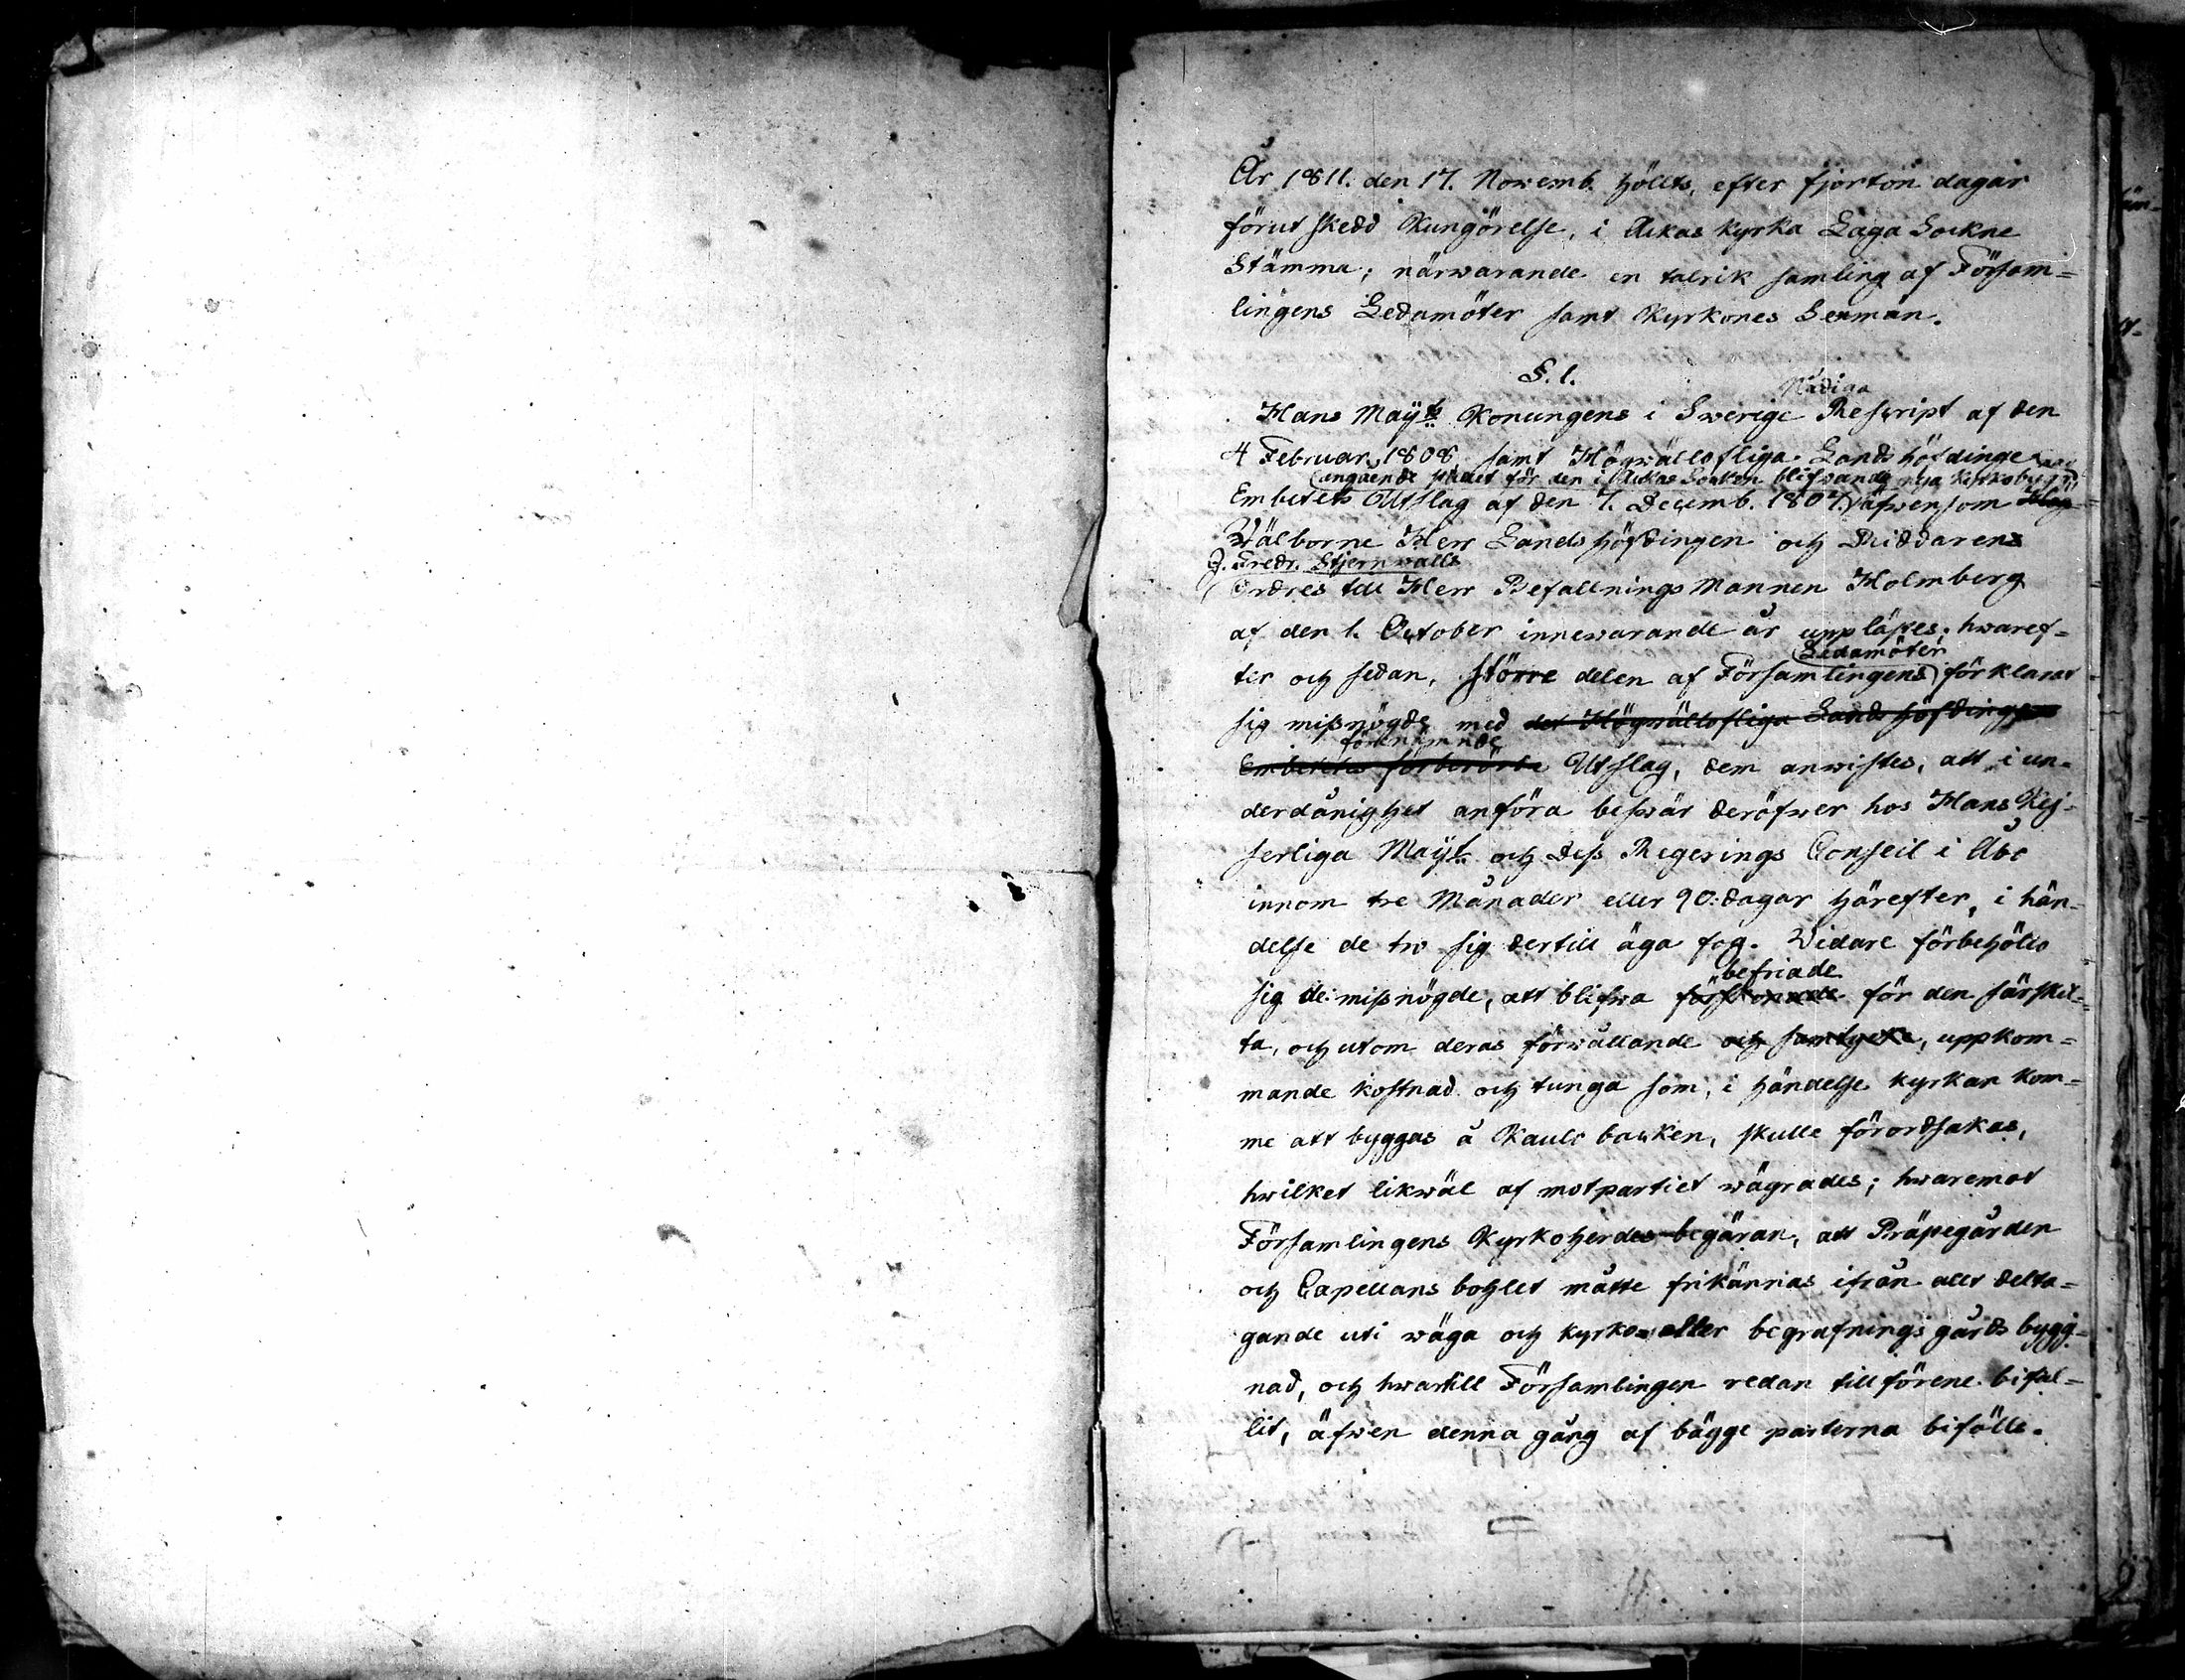 År 1811. den 17. Novemb. höllts, efter fjorton dagar
förut skedd Kungörelse, i Ackas Kyrka Laga Sockne
Stämma; närwarande en talrik samling af Försam=
lingens Ledamöter samt Kyrkones Sexmän.
§. 1.
Nådiga
Hans Maÿts Konungens i Swerige Rescript af den
4 Februar. 1808 samt Högwällofliga Landshöfdinge
angående stället för den i Ackas Socken blifwande nya Kyrkobygg:
Embetets Utslag af den 7. Decemb. 1807. äfwensom
Wälborne Herr Landshöfdingen och Riddarens
J. Fredr. Stjernvalls
Ordres till Herr Befallningsmannen Holmberg
af den 1. October innewarande år upplästes; hwaref=
Ledamöter
ter och sedan, större delen af Församlingens förklarat
sig missnögde med det Högwällofliga Landshöfdinge
förenämnde
Embetets förberörde Utslag, dem anwistes, att i un=
derdånighet anföra beswär deröfwer hos Hans Kej=
serliga Maÿt och Dess Regerings Conseil i Åbo
innom tre Månader eller 90. dagar härefter, i hän=
delse de tro sig dertill äga fog. Widare förbehöllo
befriade
sig de missnögde, att blifwa förskonade för den särskil=
ta, och utom deras förwållande och samtycke, uppkom=
mande kostnad och tunga som, i händelse kyrkan kom=
me att byggas å Kaulo backen, skulle förordsakas,
hwilket likwäl af motpartiet wägrades; hwaremot
Församlingens Kyrkoherdes begäran, att Prästegården
och Capellans bohlet måtte frikännas ifrån allt delta=
gande uti wäga och kyrko= eller begrafnings gårds bygg=
nad, och hwartill Församlingen redan tillförene bifal=
lit, äfwen denna gång af bägge parterna bifölls.